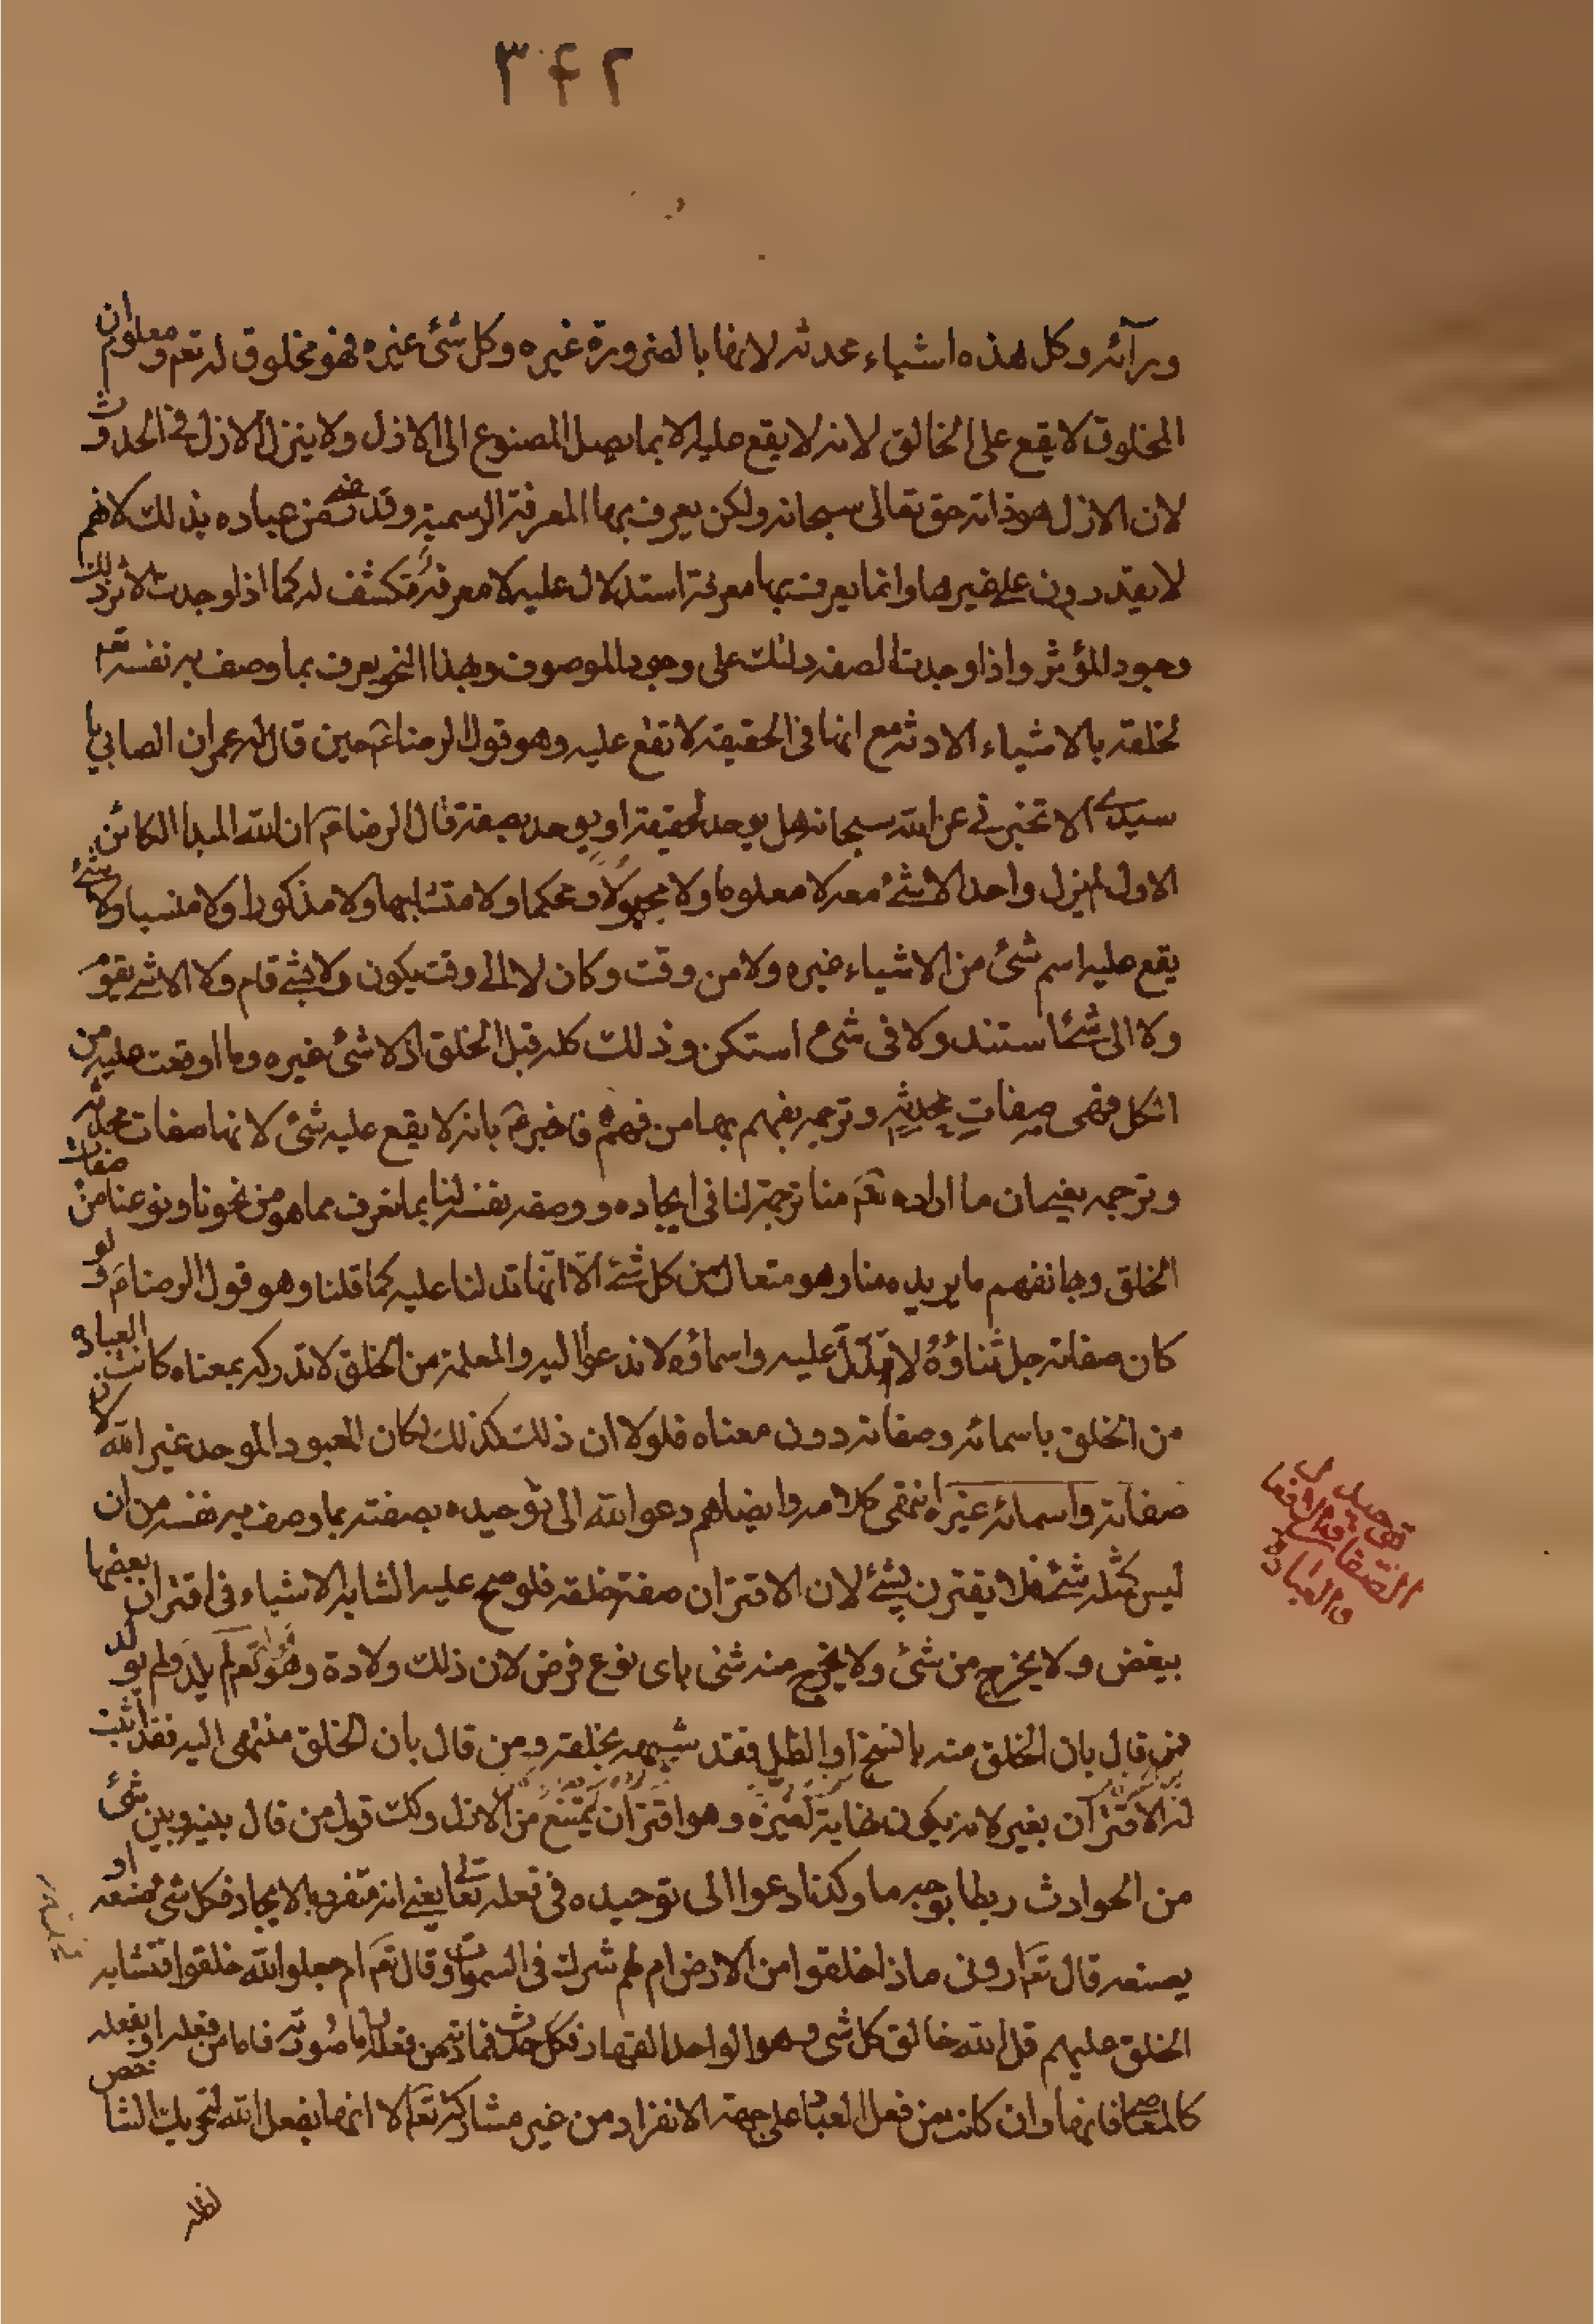 ٣٤٢
ورآئه وكل هذه اشياء محدثه لانها بالضرورة غيره وكل شئ غيره فهو مخلوق له تعم ومعلوم ان
المخلوق لا يقع على الخالق لانه لا يقع عليه الا بما يصل المصنوع الى الازل ولا ينزل الازل في الحدوث
لان الازل هو ذاته حق تعالى سبحانه ولكن يعرف بها المعرفة الرسمية وقد رضى من عباده بذلك لانهم
لا يقدرون على غيرها وانما يعرف بها معرفة استدلال عليه لا معرفة تكشف له كما اذا وجدت الاثر دلك
وجود المؤثر واذا وجدت الصفه دلتك على وجود الموصوف وبهذا النحو يعرف بما وصف به نفسه تعم
لخلقه بالاشياء الادثه مع انها فى الحقيقه لا تقع عليه وهو قول الرضا عم حين قال له عمران الصابي يا
سيدى الا تخبرنى عن الله سبحانه هل يوحد لحقيقة او يوحد بصفة قال الرضا عم ان الله المبدا الكائن
الاول لم يزل واحدا لا شئ معه لا معلوما ولا مجهولا ومحكما ولا متشابها ولا مذكورا ولا منسيا ولا شئ
يقع عليه اسم شئ من الاشياء غيره ولا من وقت وكان لا الى وقت يكون ولا بشئ قام ولا الا شئ يقوم
ولا الى شئ استند ولا فى شئ استكن وذلك كله قبل الخلق اذ لا شئ غيره وما اوقعت عليه من
الكل فهى صفات محدثه وترجمه يفهم بها من فهم فاخبر عم بانه لا يقع عليه شئ لانها صفات محدثه
وترجمه يفهمان ما اراده تعم منا ترجمة لنا فى ايجاده ووصفه نفسه لنا بما نعرف مما هو من نحونا ونوعنا من صفات
الخلق وبها نفهم ما يريده منا وهو متعال من كل شئ الا انها تدلنا عليه كما قلنا وهو قول الرضا عم ولو
كان صفاته جل ثناؤه لا تدل عليه واسماؤه لا تدعوا اليه والمعلمة من الخلق لا تدركه بمعناه كانت العباده
من الخلق باسمائه وصفاته دون معناه فلولا ان ذلك كذلك لكان المعبود الموحد غير الله لان
صفاته واسمائه غيره انتهى كلامه وايضا هم دعوا لله الى توحيده بصفته بما وصف به نفسه من ان
ليس كمثله شئ فلا يقترن بشئ لان الاقتران صفة خلقه فلو صح عليه الشابه الاشياء فى اقتران بعضها
ببعض ولا يخرج من شئ ولا يخرج منه شئ باى نوع فرض لان ذلك ولادة وهو تعم لم يلد ولم يولد
فمن قال بان الخلق منه بالسنخ او بالظل فقد شبهه بخلقه ومن قال بان الخلق منتهى اليه فقد اثبت
له الاقتران بغير لانه يكون نهاية لغيره وهو اقتران يمتنع من الازل وكك قول من قال بينه وبين شئ
من الحوادث ربطا بوجه ما وكذا دعوا الى توحيده فى فعله تعالى يعنى انه متفرد بالايجاد فكل شئ صنعه او
يصنعه قال تعم ارونى ماذا خلقوا من الارض ام لهم شرك فى السموات وقال تعم ام جعلوا لله خلقوا فتشابه
الخلق عليهم قل الله خالق كل شئ وهو الواحد القهار فكل حادث فماذته من فعله اما صورته فاما من فعله او بفعله
كالمعاصى فانها وان كانت من فعل العباد على جهة الانفراد من غير مشاركته تعم الا انها بفعل الله لتحريك الشاخص
توحيد
الصفات والافعال
والعبادة